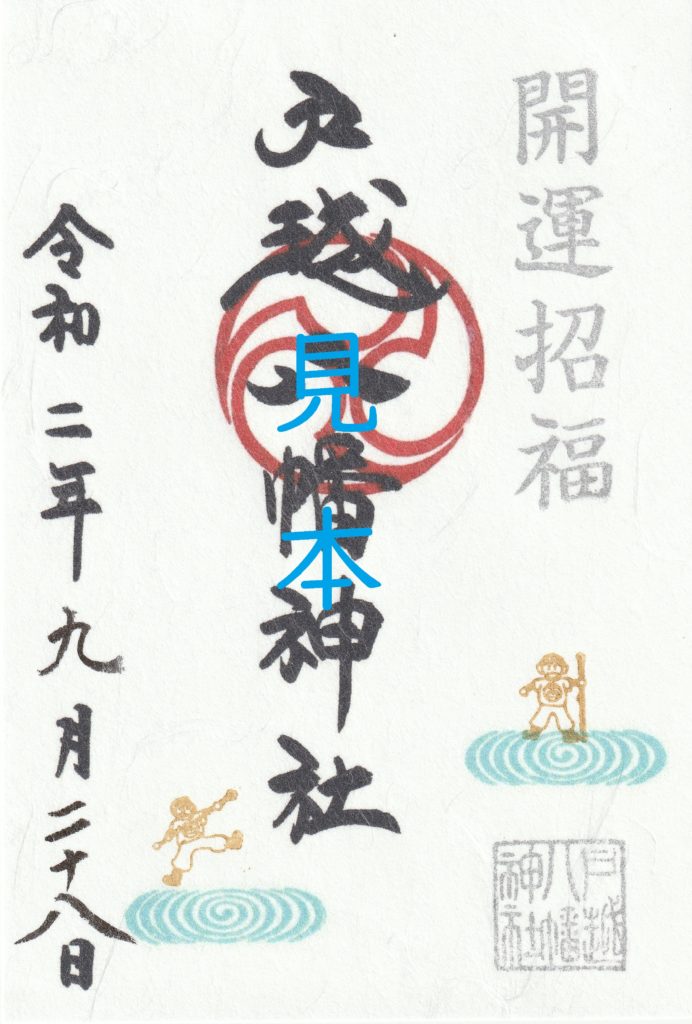 開運招福
戸越八幡神社
見本
令和二年九月二十八日
戸越
八幡
神社